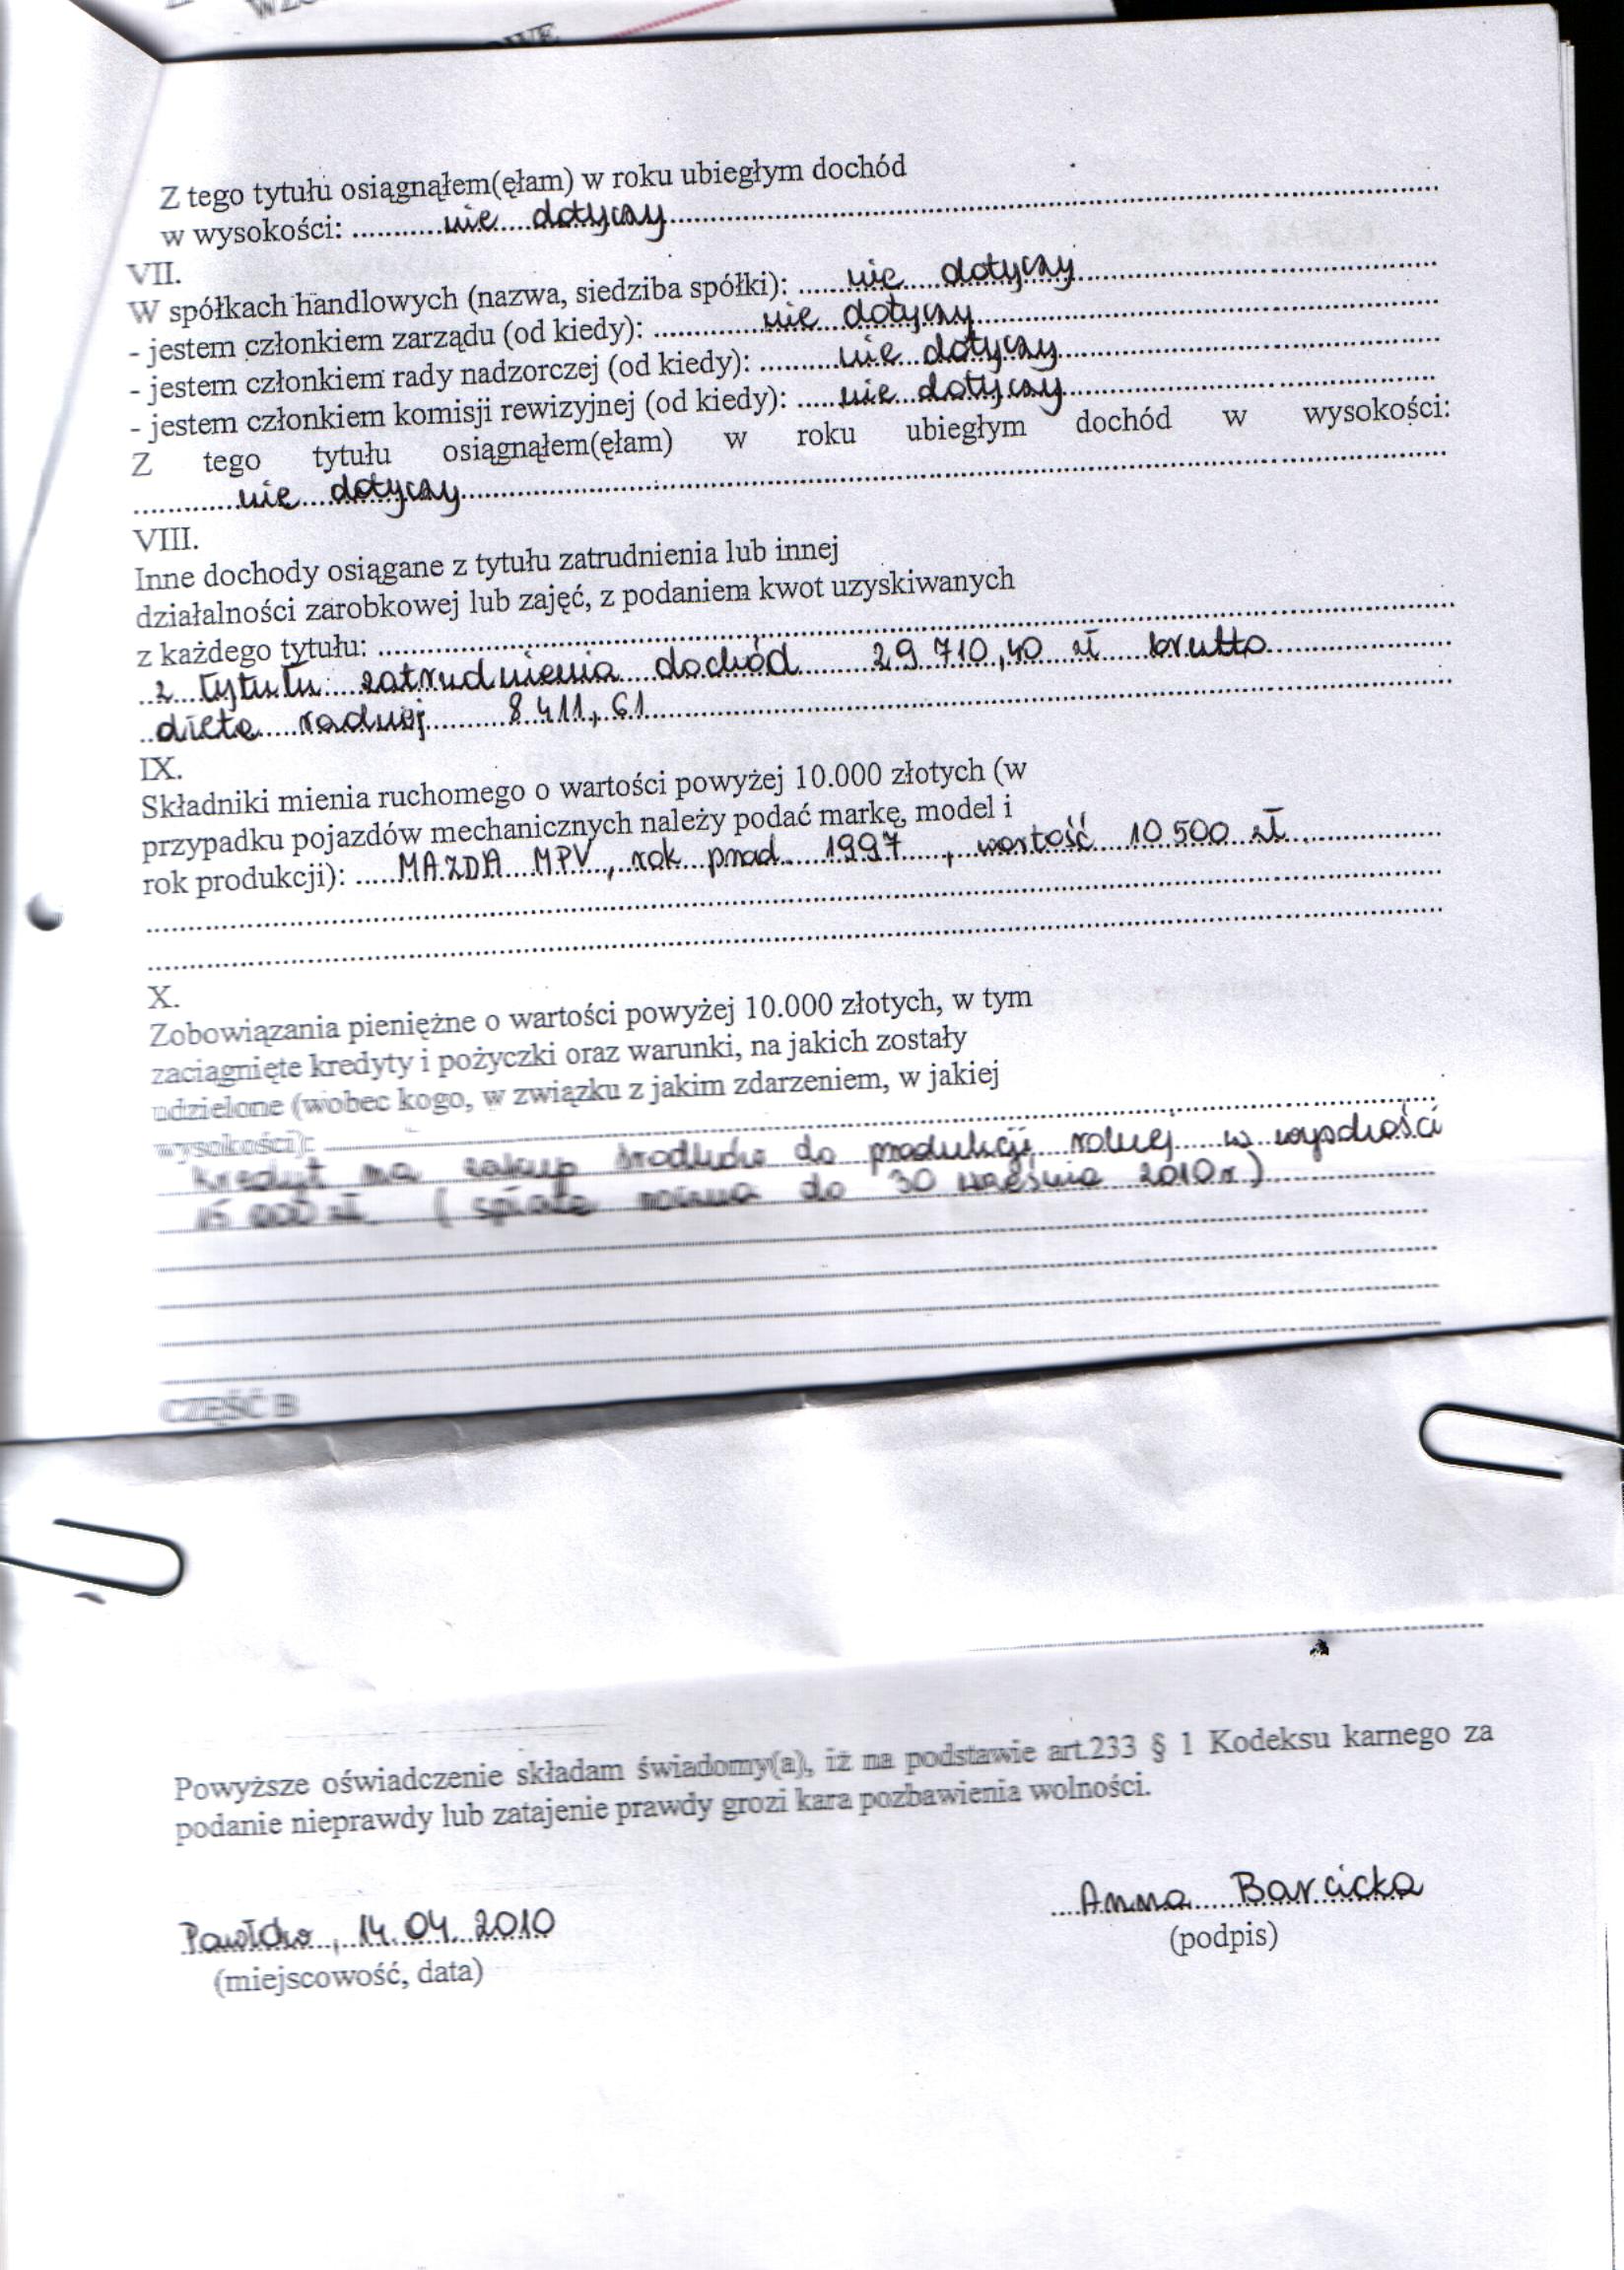 Z tego tytułu osiągnąłem(ęłam) w roku ubiegłym dochód
w wysokości: ............nie....dotyczy..........
VII.
W spółkach handlowych (nazwa, siedziba spółki): ......nie....dotyczy..........
- jestem członkiem zarządu (od kiedy): ..............nie...dotyczy..........
- jestem członkiem rady nadzorczej (od kiedy): ..........nie...dotyczy..........
- jestem członkiem komisji rewizyjnej (od kiedy): .....nie...dotyczy..........
Z tego tytułu osiągnąłem(ęłam) w roku ubiegłym dochód w wysokości:
.............nie....dotyczy..........
VIII.
Inne dochody osiągane z tytułu zatrudnienia lub innej
działalności zarobkowej lub zajęć, z podaniem kwot uzyskiwanych
z każdego tytułu: ..........
z tytułu zatrudnienia dochód 29 710,40 zł brutto
dieta radnej 8 411,61
IX.
Składniki mienia ruchomego o wartości powyżej 10.000 złotych (w
przypadku pojazdów mechanicznych należy podać markę, model i
rok produkcji): .....MAZDA MPV, rok prod. 1997, wartość 10 500 zł
X.
Zobowiązania pieniężne o wartości powyżej 10.000 złotych, w tym
zaciągnięte kredyty i pożyczki oraz warunki, na jakich zostały
udzielone (wobec kogo, w związku z jakim zdarzeniem, w jakiej
wysokości): ..........
Kredyt na zakup środków do produkcji rolnej w wysokości
zł (spłata do 30 września 2010 r.)
CZĘŚĆ B
Powyższe oświadczenie składam świadomy(a), iż na podstawie art.233 § 1 Kodeksu karnego za
podanie nieprawdy lub zatajenie prawdy grozi kara pozbawienia wolności.
Pawłów, 14.04.2010
Anna Barcicka
(miejscowość, data)
(podpis)